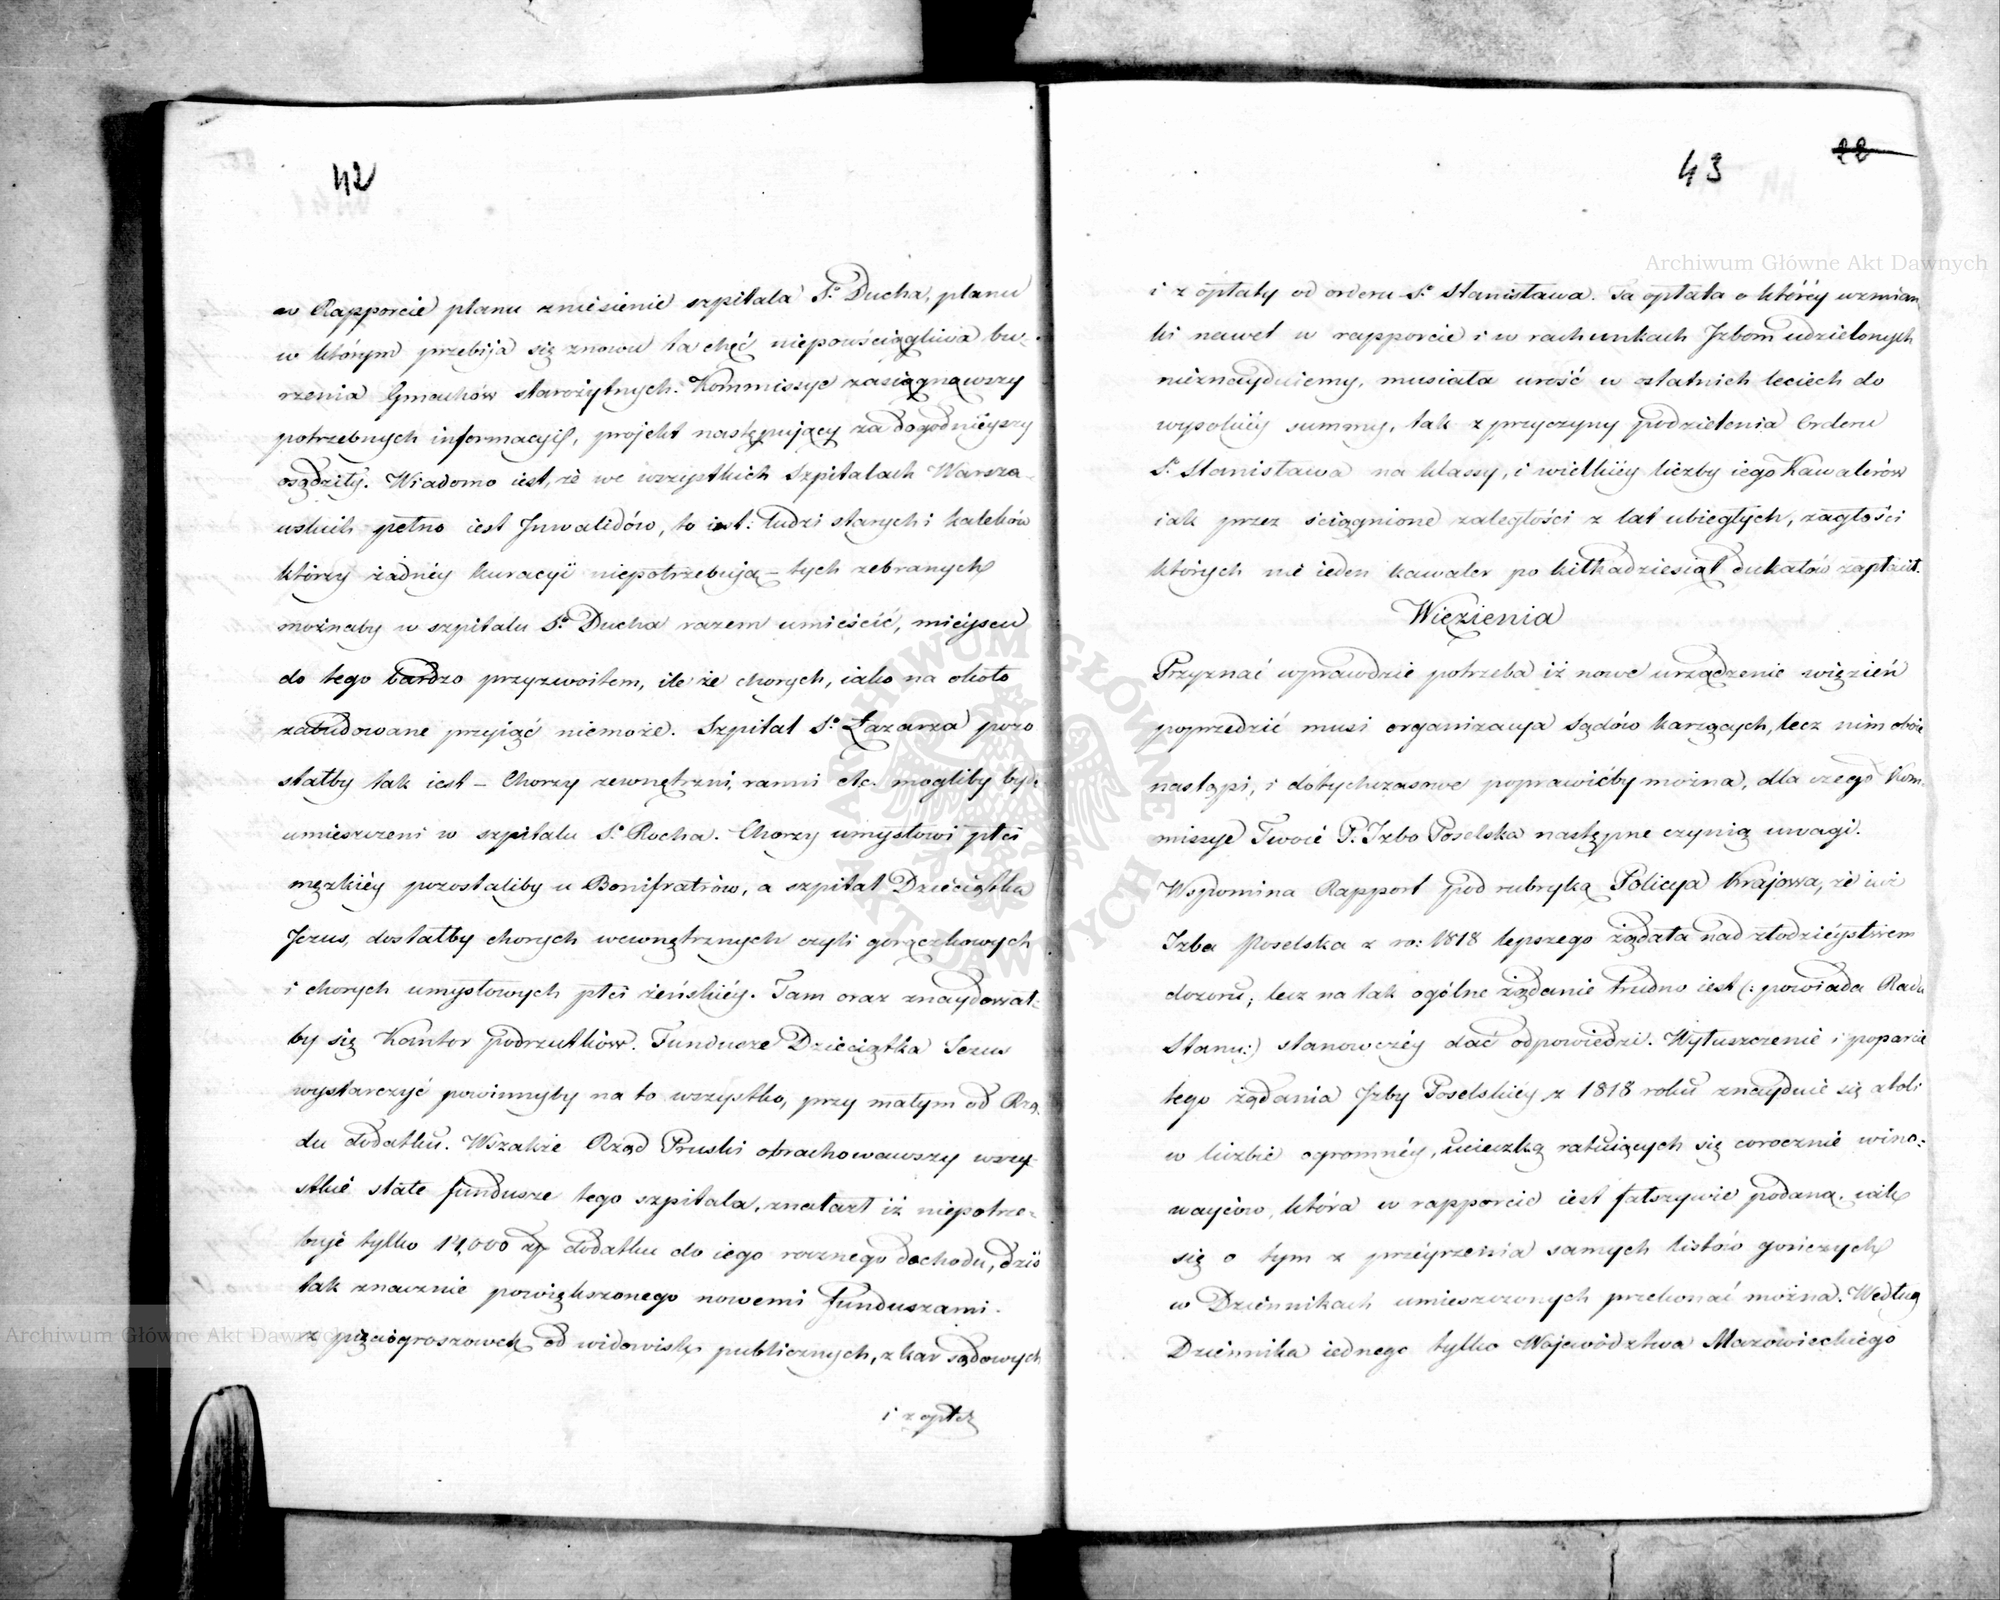 42
w Rapporcie planu zniesienie szpitala Sº Ducha, planu
w którym przebija się znowu ta chęć niepowściągliwa bu-
rzenia Gmachów starożytnych. Kommissye zasiągnąwszy
potrzebnych informacyj, projekt następujący za dogodnieyszy
osądziły. Wiadomo iest, że we wszystkich Szpitalach Warsza-
wskich pełno iest Inwalidów, to iest: ludzi starych i kaleków
którzy żadnéy kuracyi niepotrzebują – tych zebranych
możnaby w szpitalu Sº Ducha razem umieścić, mieyscu
do tego bardzo przyzwoitem, ile że chorych, iako na około
zabudowane przyiąć niemoże. Szpital Sº Łazarza pozo
stałby tak iest – Chorzy zewnętrzni, ranni etc. mogliby być
umieszczeni w szpitalu Sº Rocha. Chorzy umysłowi płci
męzkiéy pozostaliby u Bonifratrów, a szpital Dzieciątka
Jezus, dostałby chorych wewnętrznych czyli gorączkowych
i chorych umysłowych płci żeńskiéy. Tam oraz znaydował-
by się Kantor podrzutków. Fundusze Dzieciątka Jezus
wystarczyć powinnyby na to wszystko, przy małym od Rzą-
du dodatku. Wszakże Rząd Pruski obrachowawszy wszy-
stkie stałe fundusze tego szpitala, znalazł iż niepotrze-
buje tylko 14,000 zł dodatku do iego rocznego dochodu, dziś
tak znacznie powiększonego nowemi funduszami.
z pięciogroszowek od widowisk publicznych, z kar sądowych
i z opłat
43
22
i z opłaty od orderu Sº Stanisława. Ta opłata o któréy wzmian
ki nawet w rapporcie i w rachunkach Izbom udzielonych
nieznayduiemy, musiała urość w ostatnich leciech do
wysokiéy summy, tak z przyczyny podzielenia Orderu
Sº Stanisława na klassy, i wielkiéy liczby iego Kawalerów
iak przez ściągnione zaległości z lat ubiegłych, zagłości
których nie ieden kawaler po kilkadziesiąt dukatów zapłacił.
Więzienia
Przyznać wprawdzie potrzeba iż nowe urządzenie więzień
poprzedzić musi organizacya Sądów karzących, lecz nim oboie
nastąpi, i dotychczasowe poprawićby można, dla czego Kom-
missye Twoie P. Izbo Poselska następne czynią uwagi.
Wspomina Rapport pod rubryką Policya Krajowa, że iuż
Izba Poselska z ro: 1818 lepszego żądała nad złodzieystwem
dozoru; lecz na tak ogólne żądanie trudno iest (: powiada Rada
Stanu:) stanowczéy dać odpowiedzi. Wyłuszczenie i poparcie
tego żądania Izby Poselskiéy z 1818 roku znayduie się atoli
w liczbie ogromnéy, ucieczką ratuiących się corocznie wino-
wayców, która w rapporcie iest fałszywie podaną. iak
się o tym z przeyrzenia samych listów gończych
w Dziennikach umieszczonych przekonać można. Według
Dziennika iednego tylko Województwa Mazowieckiego
Archiwum Główne Akt Dawnych
Archiwum Główne Akt Dawnych
ARCHIWUM GŁÓWNE AKT DAWNYCH